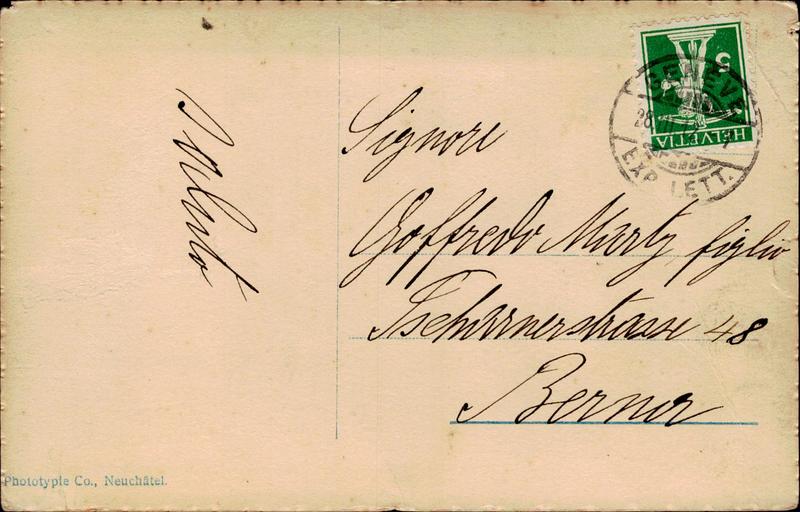 Signore
Goffredo Marty figlio
Tscharnerstrasse 48
Berner
HELVETIA
5
GENÈVE
EXP. LETT.
Phototypie Co., Neuchâtel.